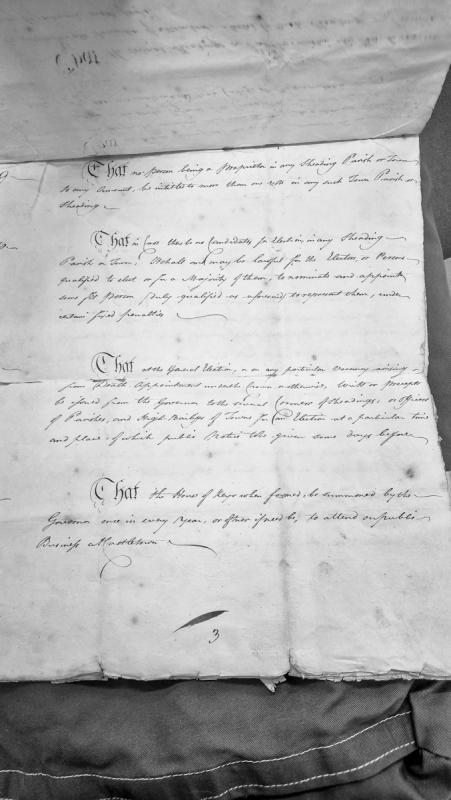 That no Person being a Proprietor in any Sheading Parish or Town
to any Amount, be intitled to more than one vote in any such Town Parish or
Sheading
That in Case there be no Candidates for Election, in any Sheading
Parish or Town; It shall and may be lawful for the Electors, or Persons
qualified to elect or for a Majority of them, to nominate and appoint
some fit Person (duly qualified as aforesaid) to represent them, under
certain fixed penalties
That at the General Election, or on any particular Vacancy arising
from Death Appointment under the Crown or otherwise, Writs or Precepts
be issued from the Governor to the several Coroners of Sheadings, or Officers
of Parishes, and High Bailiffs of Towns for Election at a particular time
and place of which public Notice to be given some days before
That the House of Keys when formed, be summoned by the
Governor once in every Year, or oftner if need be, to attend on public
Business at Castletown
3